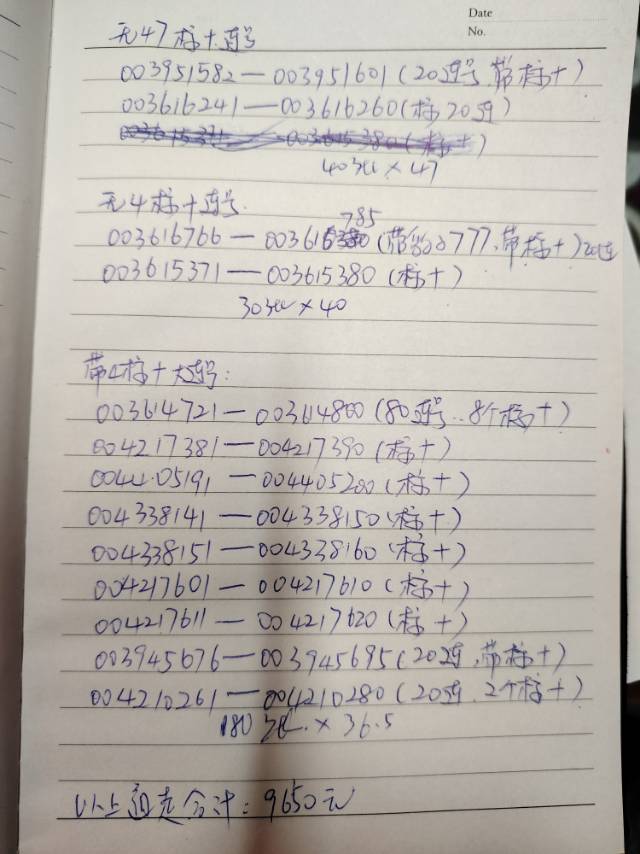 Date
No.
无47标十连号
003951582—003951601(20连号,带标十)
003616241—003616260(标20连)
003615371—003615380(标十)
40张×47
无4标十连号
785
003616766—003616(带 777,带标十)20连
003615371—003615380(标十)
30张×40
带4标十大连号:
003614721—003614800(80连号..8个标十)
004217381—004217390(标十)
004405191—004405200(标十)
004338141—004338150(标十)
004338151—004338160(标十)
004217601—004217610(标十)
004217611—004217620(标十)
003945676—003945695(20连,带标十)
004210261—004210280(20连,2个标十)
180张×36.5
以上追走合计:9650元